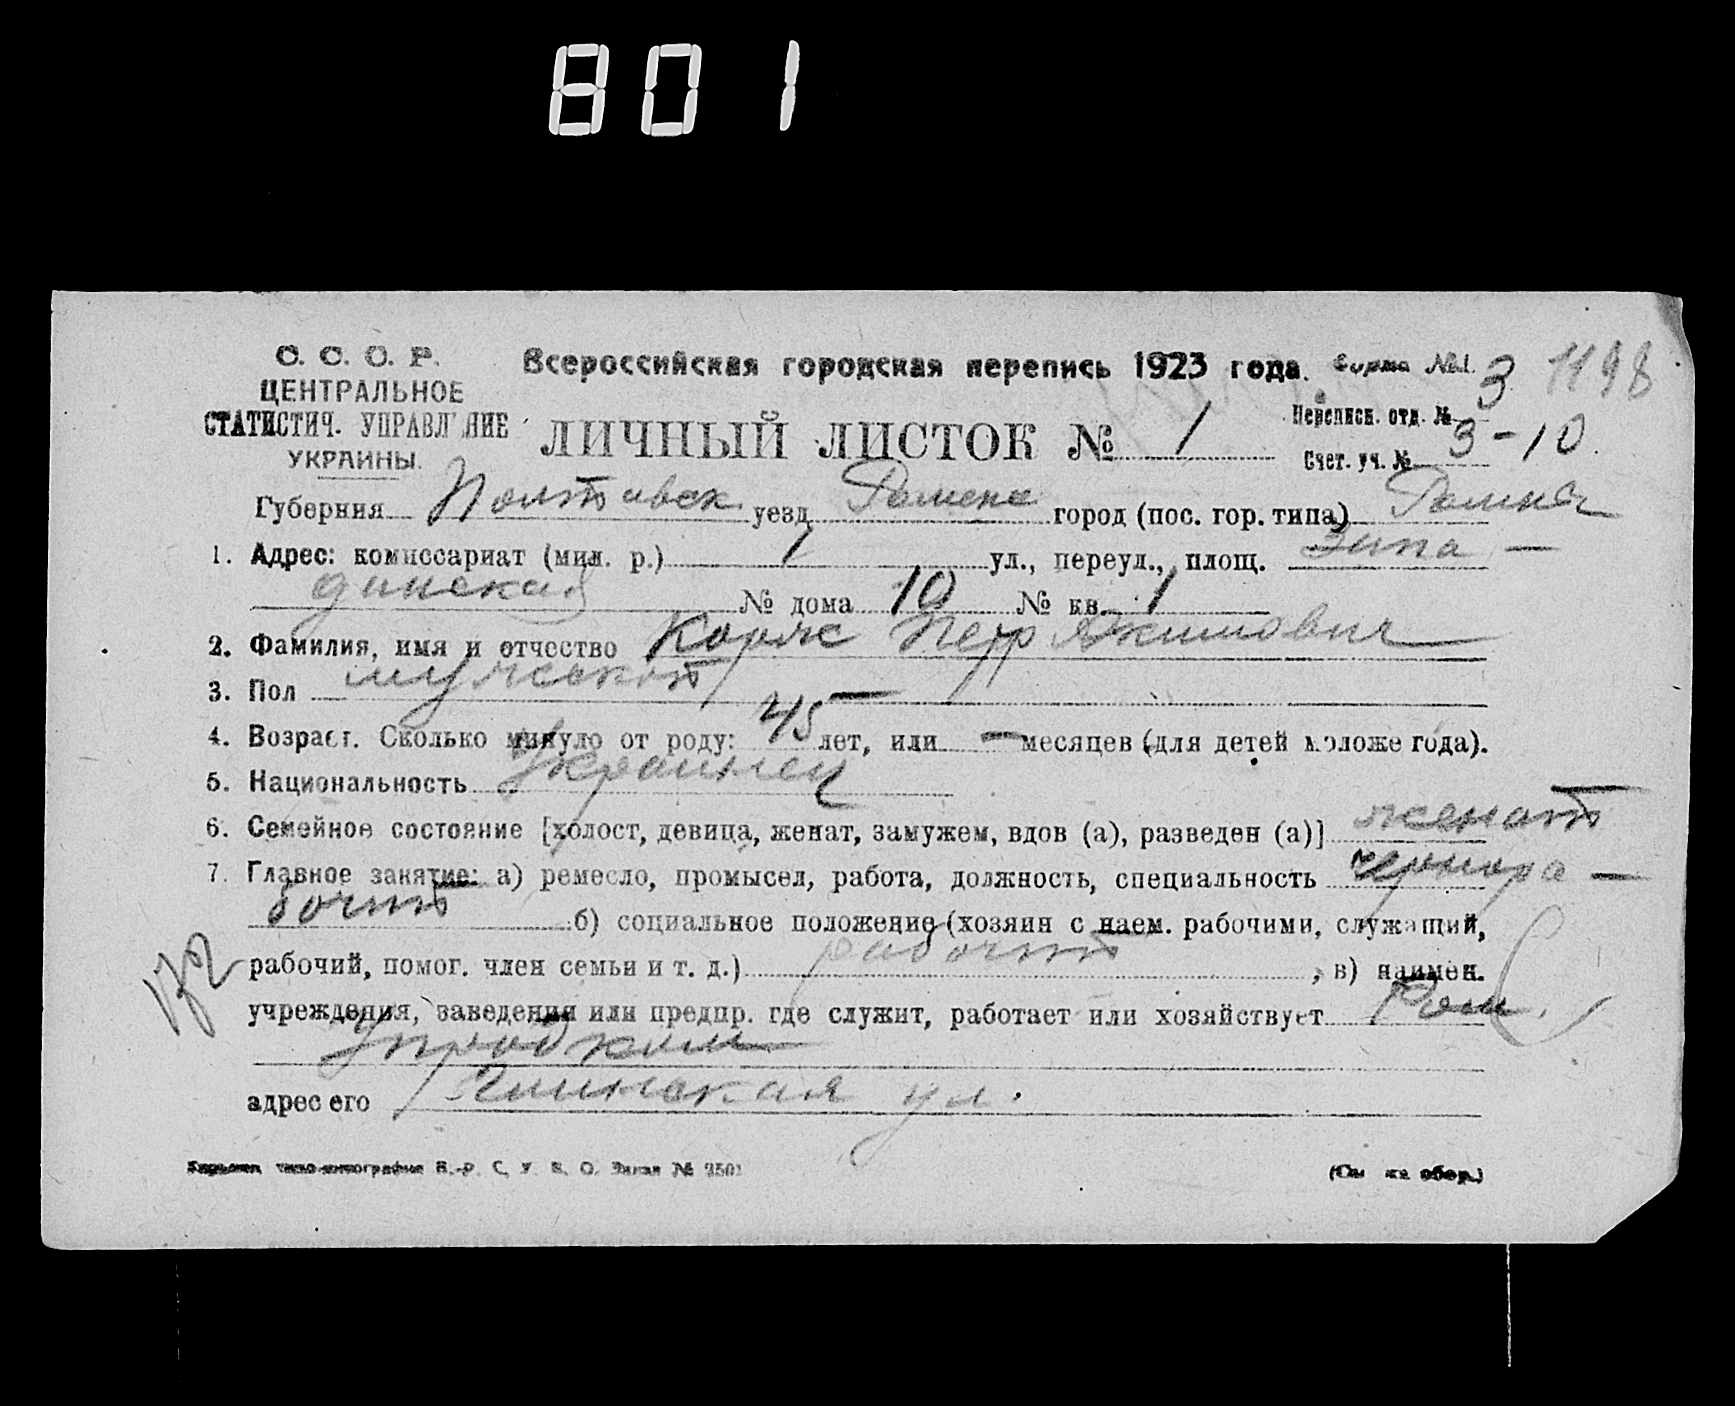 801
С. С. С. Р.
ЦЕНТРАЛЬНОЕ
СТАТИСТИЧ. УПРАВЛЕНИЕ
УКРАИНЫ.
Всероссийская городская перепись 1923 года.
Форма №1.
1198
ЛИЧНЫЙ ЛИСТОК № 1
Переписн. отд. № 3
Счет. уч. № 3-10
Губерния Полтавск уезд Роменс город (пос. гор. типа) Ромны
1. Адрес: комиссариат (мил. р.) 1 ул., переул., площ. Запа-
динская № дома 10 № кв. 1
2. Фамилия, имя и отчество Коряк Петр Якимович
3. Пол мужской
4. Возраст. Сколько минуло от роду: 45 лет, или — месяцев (для детей моложе года).
5. Национальность Украинец
6. Семейное состояние [холост, девица, женат, замужем, вдов (а), разведен (а)] женат
7. Главное занятие: а) ремесло, промысел, работа, должность, специальность чернора-
бочий б) социальное положение (хозяин с наем. рабочими, служащий,
172
рабочий, помог. член семьи и т. д.) рабочий, в) наимен.
учреждения, заведения или предпр. где служит, работает или хозяйствует Ром.
Упродком
адрес его ул.
(См на обор.)